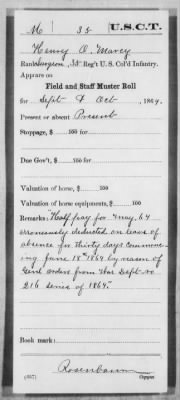 M 35 U.S.C.T.
Henry O. Marcy
Rank Surgeon, 35 Reg't U. S. Col'd Infantry.
Appears on
Field and Staff Muster Roll
for Sept & Oct, 1864.
Present or absent Present
Stoppage, $ 100 for
Due Gov't, $ 100 for
Valuation of horse, $ 100
Valuation of horse equipments, $ 100
Remarks: Half pay for May, 64
erroneously deducted on leave of
absence for thirty days commenc-
ing June 18th 1864 by reason of
Genl orders from War Dept. No
216 series of 1864.
Book mark:
Rosenbaum
(857) Copyist.